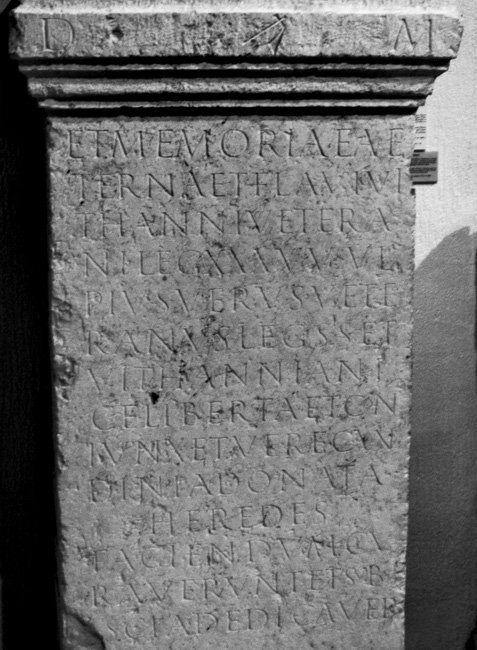 D M
ET MEMORIAE AE
TERNAE T FLAVI VI
THANNI VETERA
NI LEG XXX V V VL
PIVS VERVS VETE
RANVS LEG S S ET
VITHANNIA NI
CE LIBERTA ET CON
IVNX ET VERECVN
DINIA DONATA
HEREDES
FACIENDVM CV
RAVERVNT ET SVB
ASCIA DEDICAVER